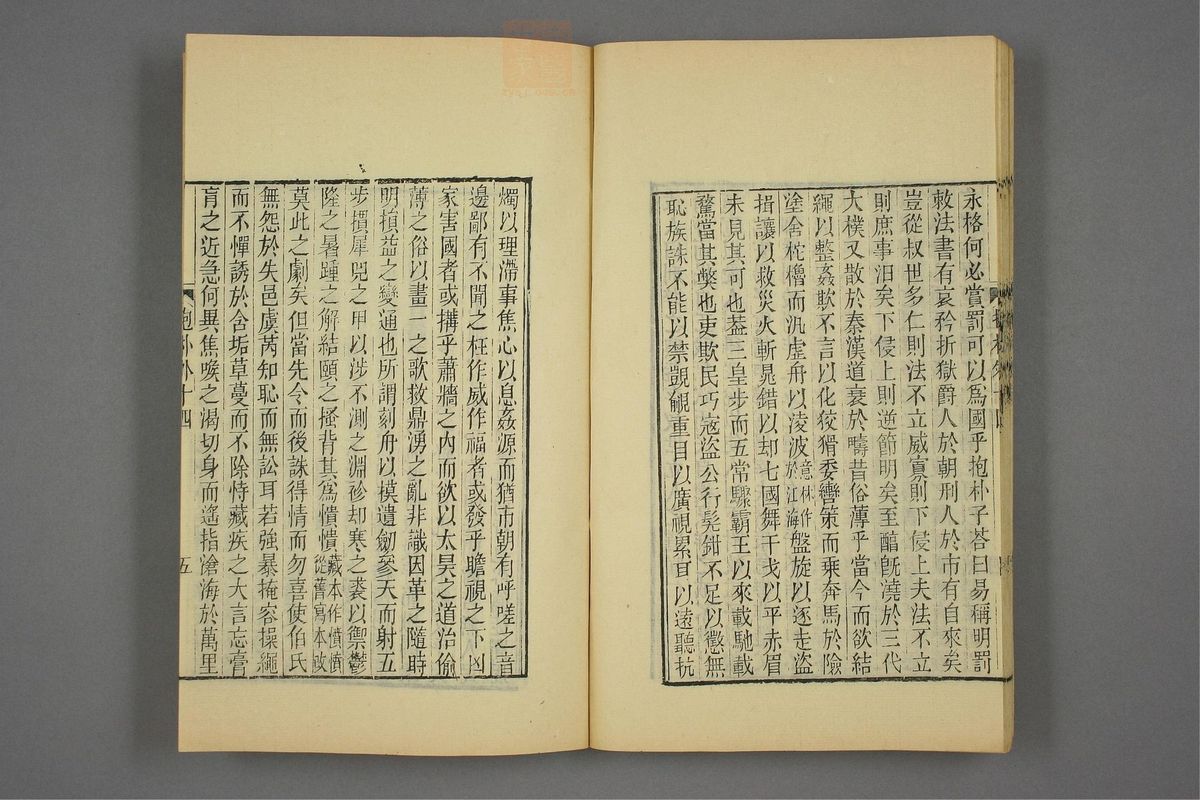 永格何必賞罰可以爲國乎抱朴子荅曰易稱明罰
敕法書有哀矜折獄爵人於朝刑人於市有自來矣
豈從叔世多仁則法不立威寡則下侵上夫法不立
則庶事汨矣下侵上則逆節明矣至醇旣澆於三代
大樸又散於秦漢道衰於疇昔俗薄乎當今而欲結
繩以整姦欺不言以化狡猾委轡策而乘奔馬於險
塗舍柁櫓而汎虛舟以淩波意林作於江海盤旋以逐走盜
揖讓以救災火斬晁錯以却七國舞干戈以平赤眉
未見其可也葢三皇步而五常驟霸王以來載馳載
騖當其獘也吏欺民巧寇盜公行髠鉗不足以懲無
恥族誅不能以禁覬覦重目以廣視累耳以遠聽抗
燭以理滯事焦心以息姦源而猶市朝有呼嗟之音
邊鄙有不聞之枉作威作福者或發乎瞻視之下凶
家害國者或搆乎蕭牆之內而欲以太昊之道治偷
薄之俗以畫一之歌救鼎湧之亂非識因革之隨時
明損益之變通也所謂刻舟以摸遺劒參天而射五
步摜犀兕之甲以涉不測之淵袗却寒之裘以禦鬱
隆之暑踵之解結頤之搔背其爲憒憒藏本作憤憤從舊寫本改
莫此之劇矣但當先令而後誅得情而勿喜使伯氏
無怨於失邑虞芮知恥而無訟耳若強暴掩容操繩
而不憚誘於含垢草蔓而不除恃藏疾之大言忘膏
肓之近急何異焦喉之渴切身而遙指滄海於萬里
抱朴外十四
五